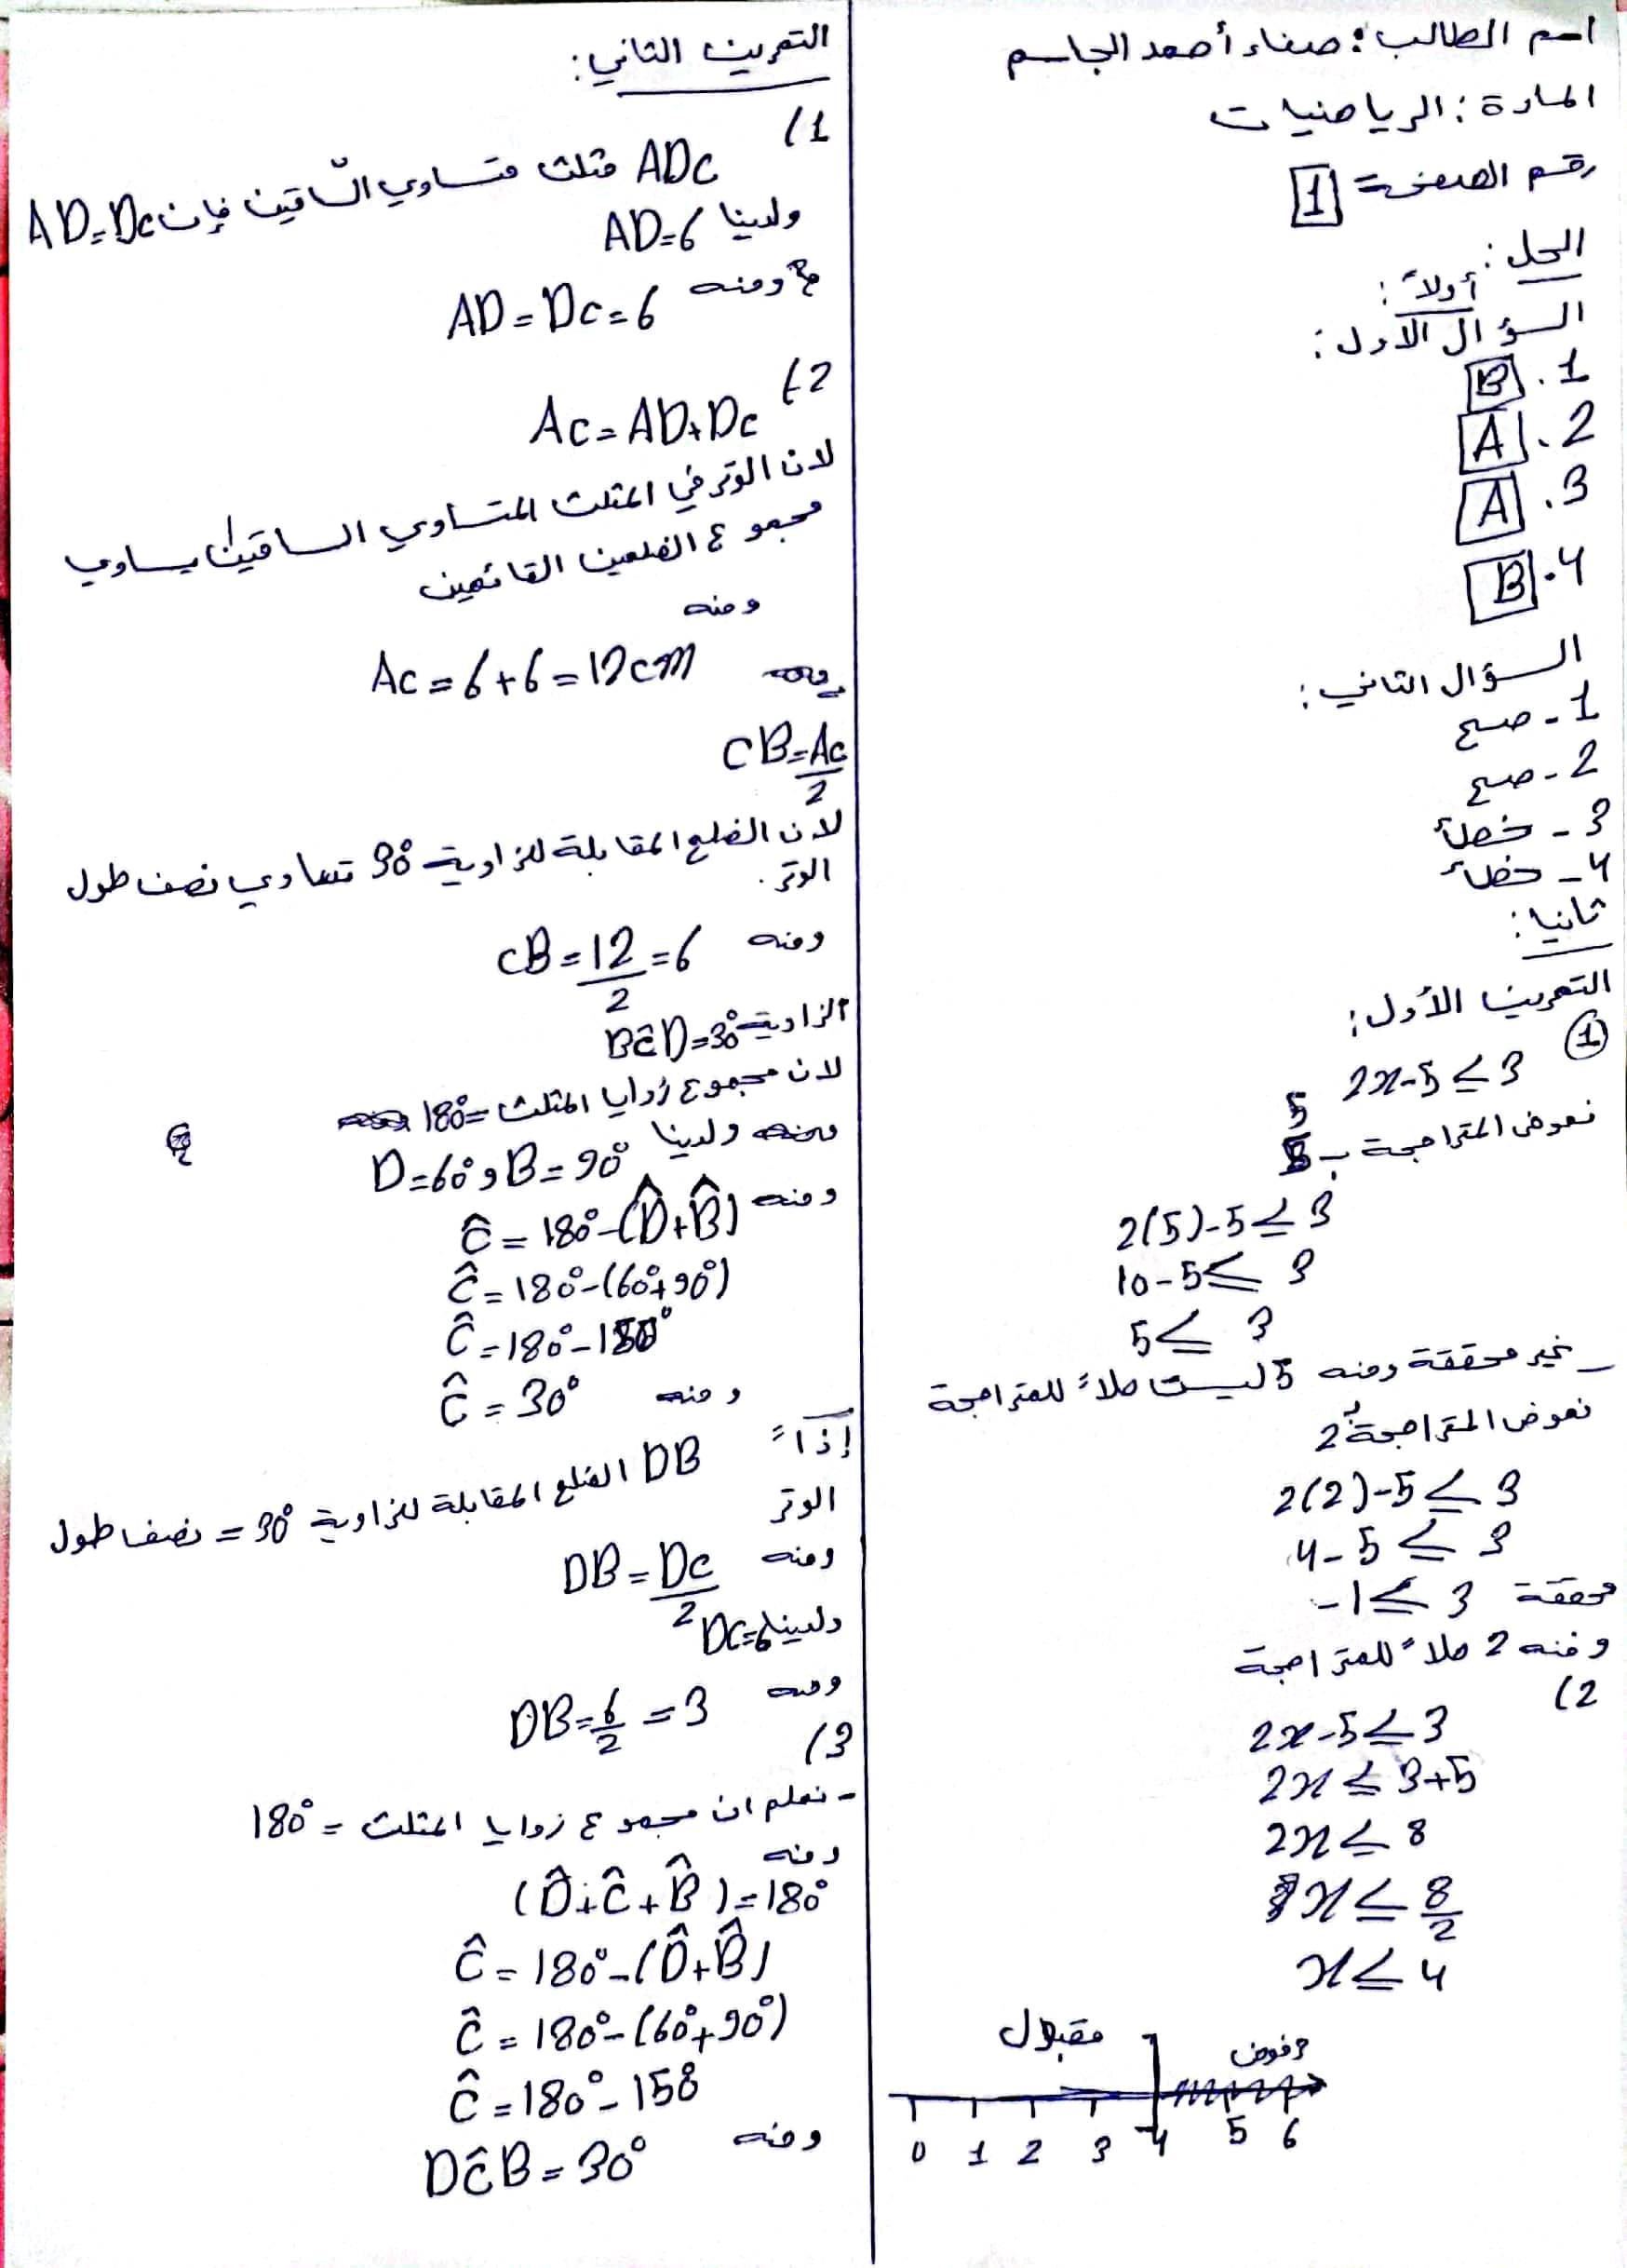 اسم الطالب: صفاء أحمد الجاسم
المادة: الرياضيات
رقم الصفحة = 1
الحل:
أولاً:
السؤال الأول:
1. B
2. A
3. A
4. B
السؤال الثاني:
1- صح
2- صح
3- خطأ
4- خطأ
ثانيا:
التمرين الأول:
①
2x-5 ≤ 3
نعوض المتراجحة بـ 5
2(5)-5 ≤ 3
10-5 ≤ 3
5 ≤ 3
غير محققة ومنه 5 ليست حلاً للمتراجحة
نعوض المتراجحة بـ 2
2(2)-5 ≤ 3
4-5 ≤ 3
-1 ≤ 3 محققة
ومنه 2 حلاً للمتراجحة
(2
2x-5 ≤ 3
2x ≤ 3+5
2x ≤ 8
x ≤ 8/2
x ≤ 4
مقبول
0 1 2 3 4 5 6
التمرين الثاني:
(1
ADC مثلث متساوي السّاقين فإن AD=DC
ولدينا AD=6
ومنه AD=DC=6
(2
AC=AD+DC
لان الوتر في المثلث المتساوي الساقين يساوي
مجموع الضلعين القائمين
ومنه
AC=6+6=12cm
CB=AC/2
لان الضلع المقابلة للزاوية 30° تساوي نصف طول
الوتر.
ومنه CB=12/2=6
الزاوية BĈD=30°
لان مجموع زوايا المثلث = 180°
ولدينا D=60° و B=90°
ومنه Ĉ = 180°-(D̂+B̂)
Ĉ = 180°-(60°+90°)
Ĉ = 180°-150°
ومنه Ĉ = 30°
إذاً
DB الضلع المقابلة للزاوية 30° = نصف طول
الوتر
ومنه DB=DC/2
ولدينا DC=6
ومنه DB=6/2=3
(3
- نعلم ان مجموع زوايا المثلث = 180°
ومنه
(D̂+Ĉ+B̂)=180°
Ĉ = 180°-(D̂+B̂)
Ĉ = 180°-(60°+90°)
Ĉ = 180°-150
ومنه
DĈB=30°